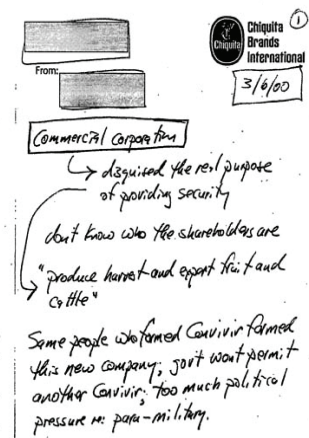 Chiquita
Chiquita
Brands
International
1
From:
3/6/00
Commercial Corporation
disguised the real purpose
of providing security
don't know who the shareholders are
"produce harvest and export fruit and
cattle"
Same people who formed Convivir formed
this new company; gov't won't permit
another Convivir; too much political
pressure re: para-military.